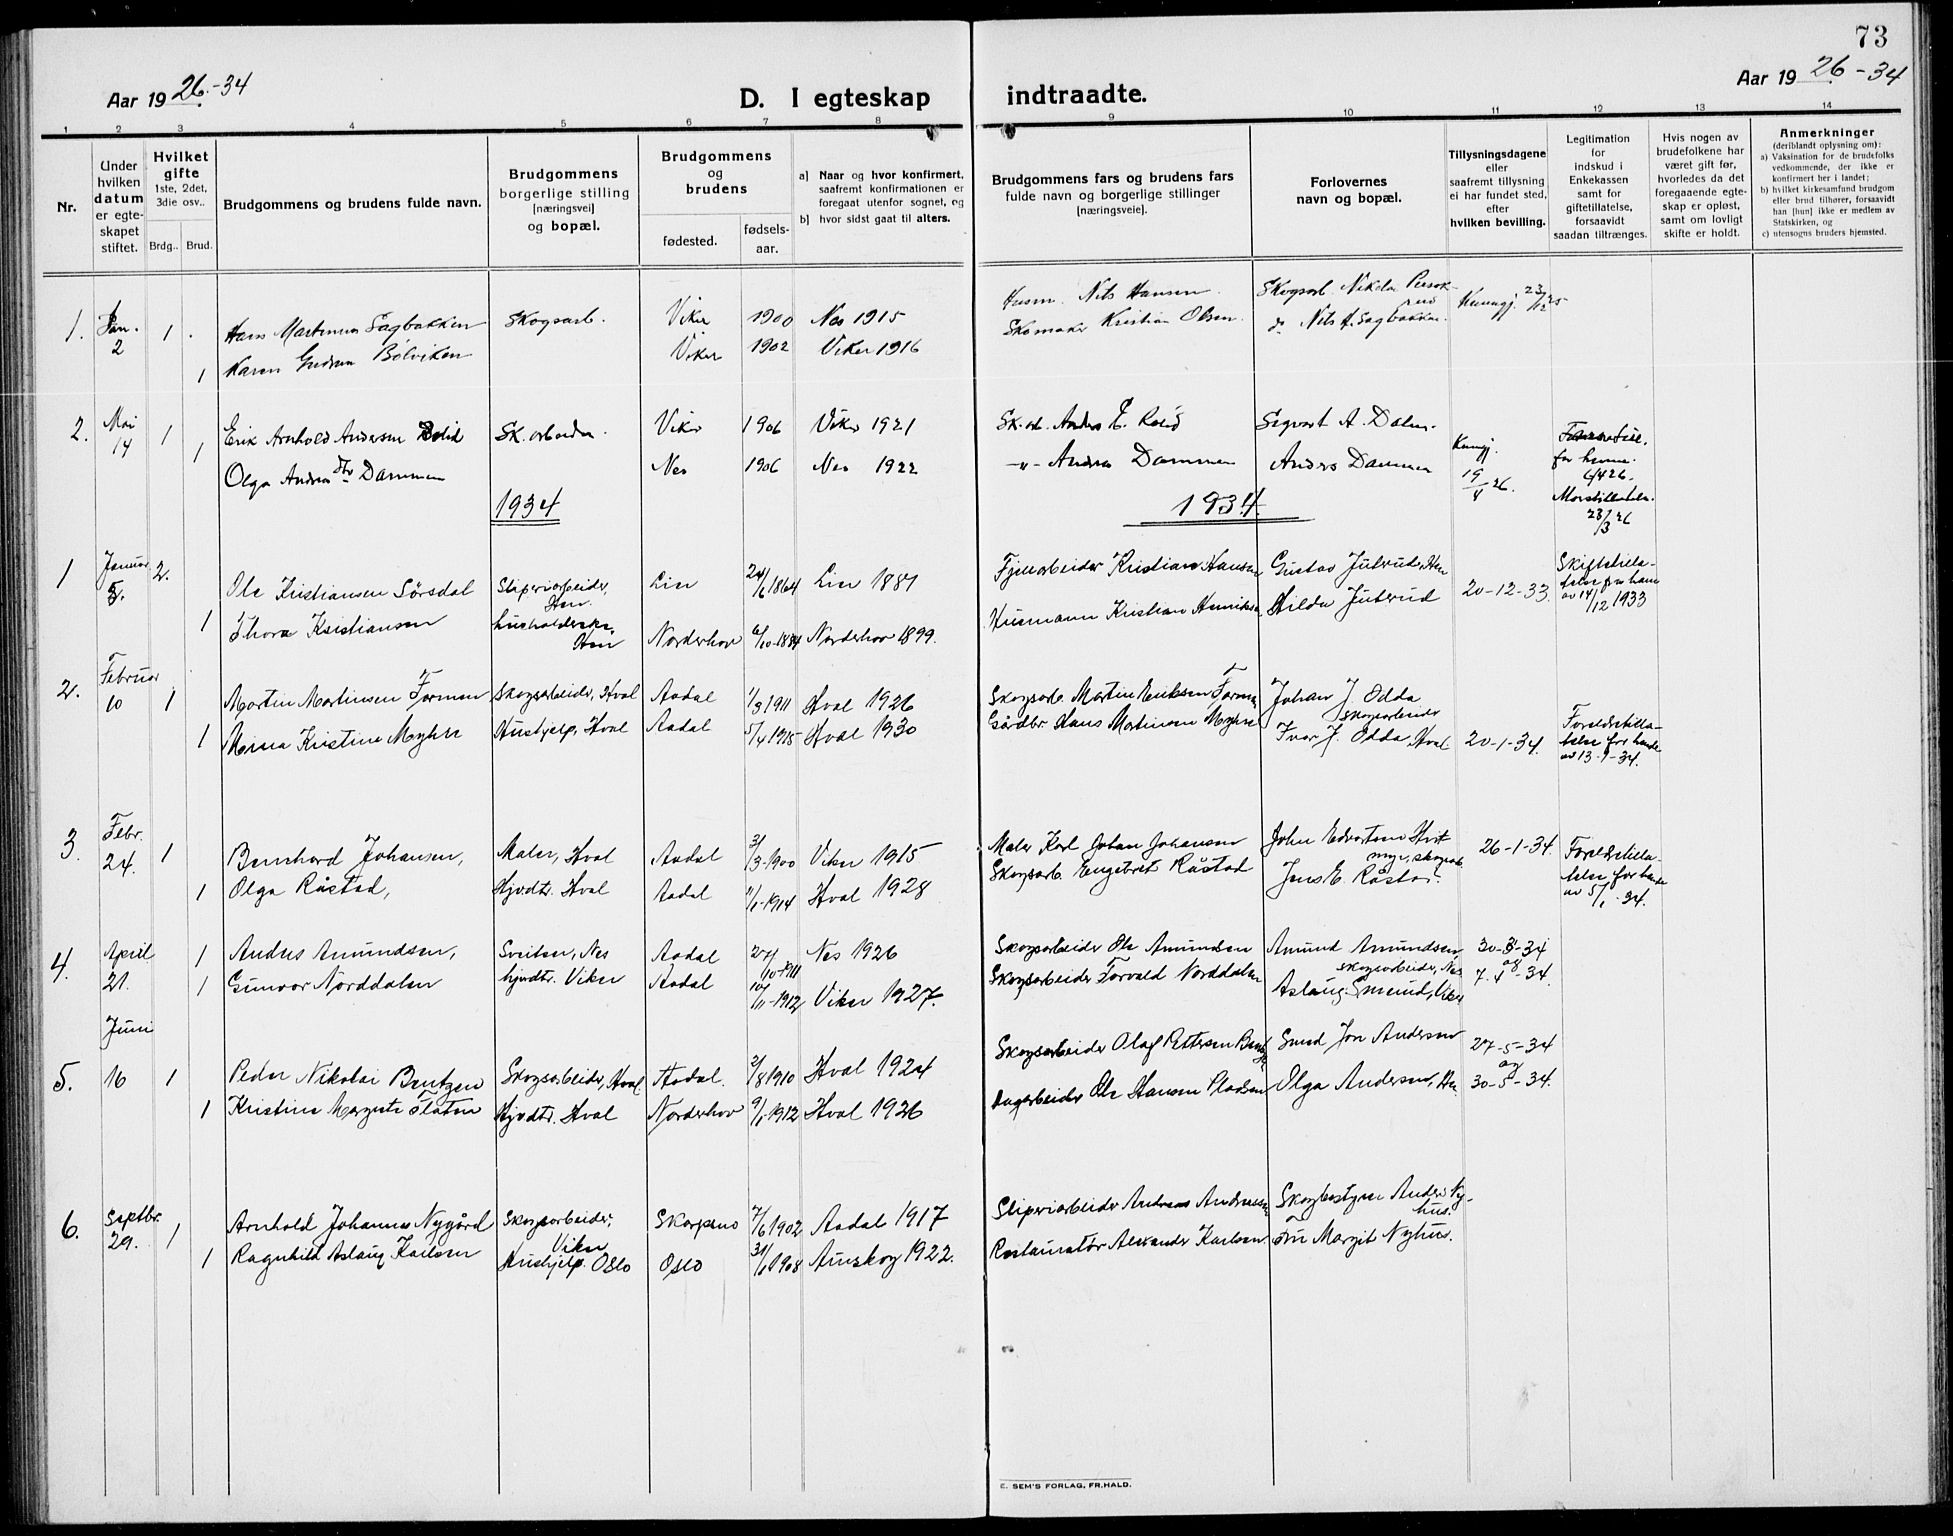 73
Aar 1926-34
D. I egteskap indtraadte.
Aar 1926-34
1 2 3 4 5 6 7 8 9 10 11 12 13 14
Nr.
Under hvilken datum er egteskapet stiftet.
Hvilket gifte 1ste, 2det, 3die osv..
Brdg.. Brud.
Brudgommens og brudens fulde navn.
Brudgommens borgerlige stilling [næringsvei] og bopæl.
Brudgommens og brudens
fødested. fødselsaar.
a] Naar og hvor konfirmert, saafremt konfirmationen er foregaat utenfor sognet, og
b] hvor sidst gaat til alters.
Brudgommens fars og brudens fars fulde navn og borgerlige stillinger [næringsveie].
Forlovernes navn og bopæl.
Tillysningsdagene eller saafremt tillysning ei har fundet sted, efter hvilken bevilling.
Legitimation for indskud i Enkekassen samt for giftetillatelse, forsaavidt saadan tiltrænges.
Hvis nogen av brudefolkene har været gift før, hvorledes da det foregaaende egteskap er opløst, samt om lovligt skifte er holdt.
Anmerkninger (deriblandt oplysning om):
a) Vaksination for de brudefolks vedkommende, der ikke er konfirmert her i landet;
b) hvilket kirkesamfund brudgom eller brud tilhører, forsaavidt han [hun] ikke er medlem av Statskirken, og
c) utensogns bruders hjemsted.
1. Jan. 2 1 Hans Martinus Sagbakken Skogsarb. Viker 1900 Nes 1915 Husm. Nils Hansen Skogsarb. Nikolai
1 Karen Gudrun Bölviken Viker 1902 Viker 1916 Skomaker Kristian Olsen. Nils H. Sagbakken Kunngj. 23/12 25
2. Mai 14 1 Erik Arnhold Andersen Sk. arbeider Viker 1906 Viker 1921 Sk. arb. Anders E. Sigvart A. Dalen
1 Olga Andrea Dammen Nes 1906 Nes 1922 -"- Andreas Dammen Anders Dammen Kungj. 19/4 26.
for henne 6/4 26. 23/3 26
1934 1934
1 Januar 5. 2. Ole Kristiansen Sörsdal Sliperiarbeider, Hen. Lier 24/6 1864 Lier 1881 Kristian Hansen Gustav Juterud, Hen 20-12-33. av 14/12 1933
1 Thora Kristiansen husholderske, Hen Norderhov 6/10-1884 Norderhov 1899. Husmann Kristian Henriksen Hilda Juterud
2. Februar 10 1 Martin Martinsen Forman Skogsarbeider, Hval Aadal 1/3 1911 Hval 1926 Skogsarb. Martin Eriksen Forman Johan J. Odda skogsarbeider
1 Maria Kristine Myhre Hushjelp, Hval Aadal 5/4 1915 Hval 1930 Gårdbr. Hans Martinsen Myhre Ivar J. Odda Hval 20-1-34. Foreldretillatelse for bande av 13-1-34.
3. Febr. 24. 1 Bernhard Johansen, Maler, Hval Aadal 3/3-1900 Viker 1915 Maler Karl Johan Johansen John 26-1-34. Foreldretillatelse for bande av 5/1-34.
1 Olga Råstad, Hjvdtr. Hval Aadal 11/1-1914 Hval 1928 Skogsarb. Engebret Råstad Jens E. Råstad.
4. April 21. 1 Anders Amundsen, Sveitser, Nes Aadal 27/10-1911 Nes 1926 Skogsarbeider Ole Amundsen Amund Amundsen, skogsarbeider, Nes 30-3-34 og
1 Gunvor Norddalen hjvdtr. Viker Aadal 10/11-1912 Viker 1927. Skogsarbeider Torvald Norddalen Aslaug Smeiud, Viker 7-4-34.
5. Juni 16 1 Peder Nikolai Bentzen Skogsarbeider, Hval Aadal. 2/8 1910 Hval 1924 Skogsarbeider Olaf Pettersen Smed Jon Andersen 27-5-34 og
1 Kristine Margrete Flaten Hjvdtr. Hval Norderhov 9/1-1912 Hval 1926 Ole Hansen Pladsen Olga Andersen, 30-5-34.
6. Septbr. 29. 1 Arnhold Johannes Nygård Skogsarbeider, Viker Skarpsno 7/6 1902 Aadal 1917 Sliperiarbeider Andreas Andreassen Skogbestyrer Anders Nyhus.
1 Ragnhild Aslaug Karlsen Hushjelp. Oslo Oslo 31/1 1908 Aurskog 1922. Restauratør Alexander Karlsen. Fru Margit Nyhus.
E. SEM'S FORLAG, FR.HALD.